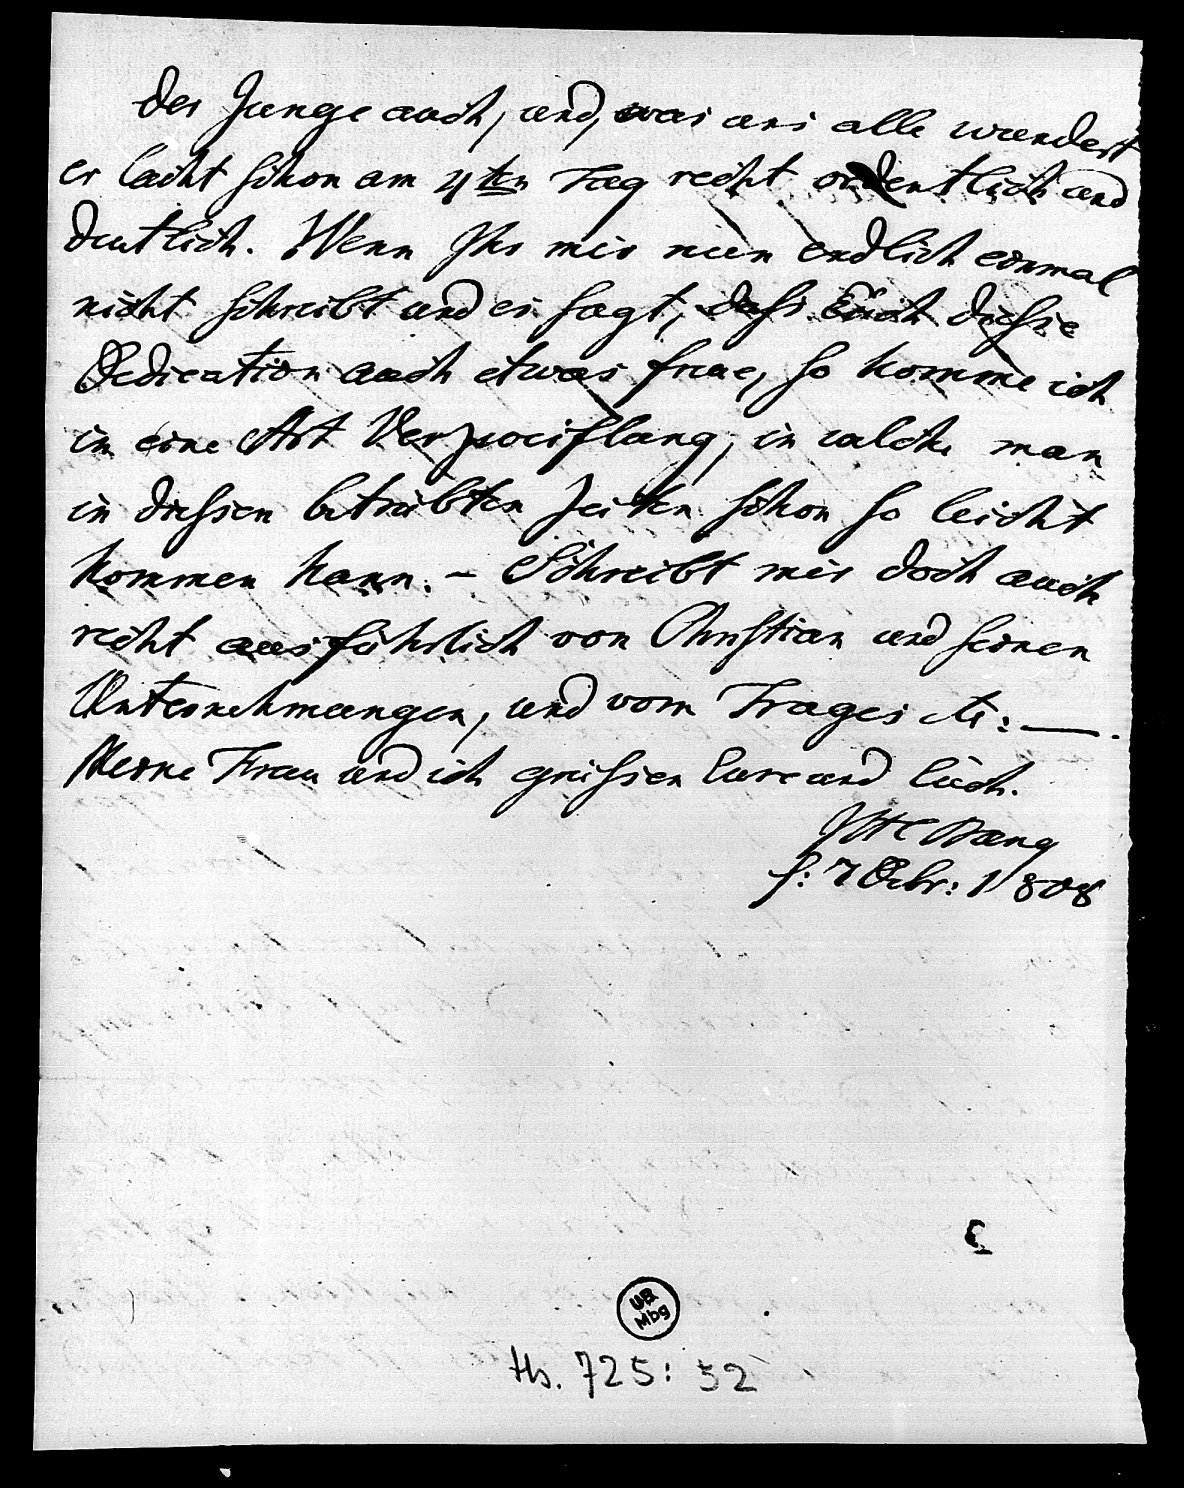 der Junge auch, und, was uns alle wundert
er lacht schon am 4ten Tag recht ordentlich und
deutlich. Wenn Ihr mir nun endlich einmal
nicht schreibt und es sagt, dass Euch diesse
Dedication auch etwas freue, so komme ich
in eine Art Verzweiflung, in welche man
in diessen betrübten Zeiten schon so leicht
kommen kann. – Schreibt mir doch auch
recht ausführlich von Christian und seinen
Unternehmungen, und vom Trages etc: —.
Meine Frau und ich grüssen Eure und Euch.
JHC Bang
f: 7 Octbr: 1808
UB
Mbg
Hs. 725: 52